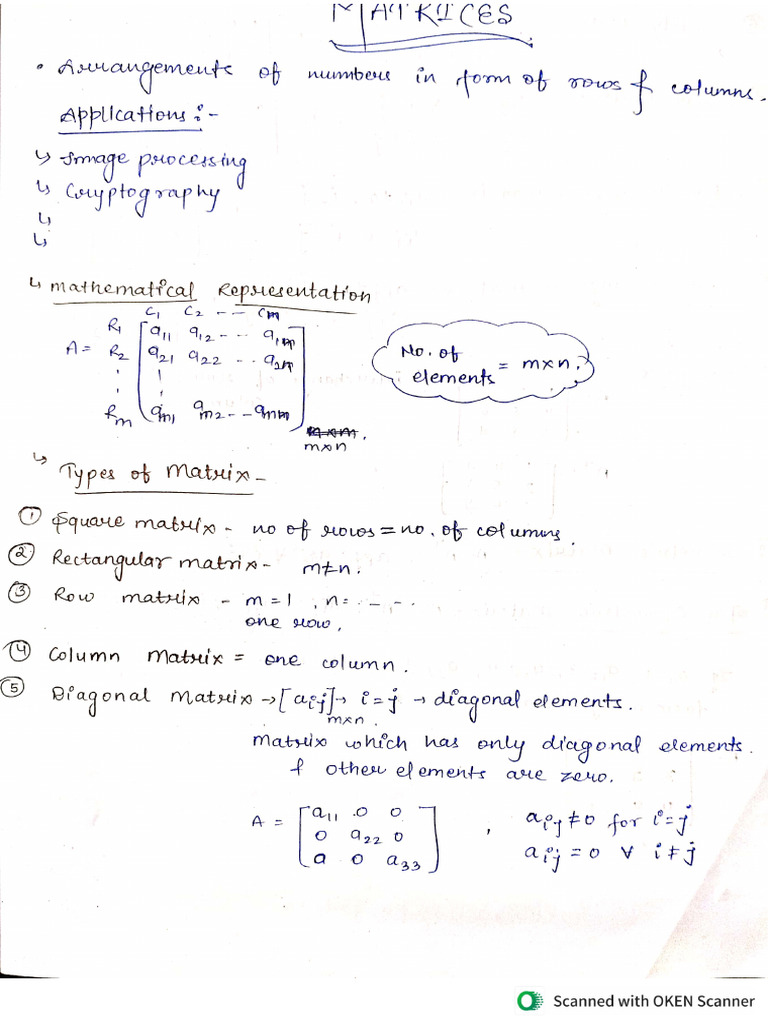 MATRICES
• Arrangements of numbers in form of rows & columns.
Applications:-
↳ Image processing
↳ Cryptography
↳
↳
↳ Mathematical Representation
C1 C2 -- Cm
R1 a11 a12 -- a1m
A = R2 a21 a22 -- a2m
Rm am1 am2 -- amm
m×m.
m×n
No. of
elements = m×n.
↳ Types of Matrix -
① Square matrix - no of rows = no. of columns.
② Rectangular matrix - m≠n.
③ Row matrix - m=1, n= - - -.
one row.
④ Column Matrix = one column.
⑤ Diagonal Matrix → [aij] → i=j → diagonal elements.
m×n.
Matrix which has only diagonal elements.
& other elements are zero.
a11 0 0
A = 0 a22 0 , aij ≠ 0 for i=j
a 0 a33 aij = 0 ∀ i≠j
Scanned with OKEN Scanner